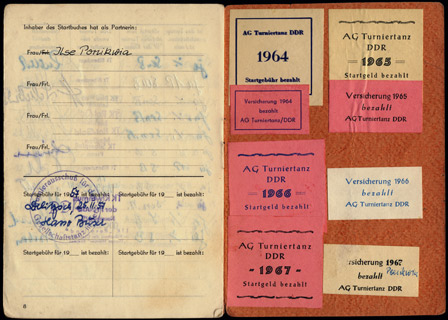 Inhaber des Startbuches hat als Partnerin:
Frau/Frl. Ilse
Frau/Frl.
Frau/Frl.
Frau/Frl.
Startgebühr für 1957 ist bezahlt:
Startgebühr für 19 ist bezahlt:
Startgebühr für 19 ist bezahlt:
Startgebühr für 19 ist bezahlt:
8
AG Turniertanz DDR
1964
Startgebühr bezahlt
Versicherung 1964
AG Turniertanz/DDR
AG Turniertanz
DDR
1965
Startgeld bezahlt
Versicherung 1965
bezahlt
AG Turniertanz DDR
AG Turniertanz
DDR
- 1966 -
Startgeld bezahlt
Versicherung 1966
bezahlt
AG Turniertanz DDR
AG Turniertanz
DDR
- 1967 -
Startgeld bezahlt
ersicherung 1967
bezahlt
AG Turniertanz DDR